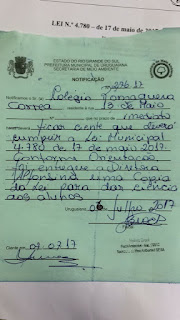 LEI N.º 4.780 – de 17 de maio de 2017
ESTADO DO RIO GRANDE DO SUL
PREFEITURA MUNICIPAL DE URUGUAIANA
SECRETARIA DE MEIO AMBIENTE
NOTIFICAÇÃO
Colégio Domingues
Correa 13 de Maio
ficar ciente que deverá
cumprir a Lei Municipal
4.780 de 17 de maio 2017.
Conforme Orientação
foi entregue a Diretora
uma Copia
da Lei para dar ciência
aos alunos
Uruguaiana, 06 Julho 2017
Ciente em 07.07.17